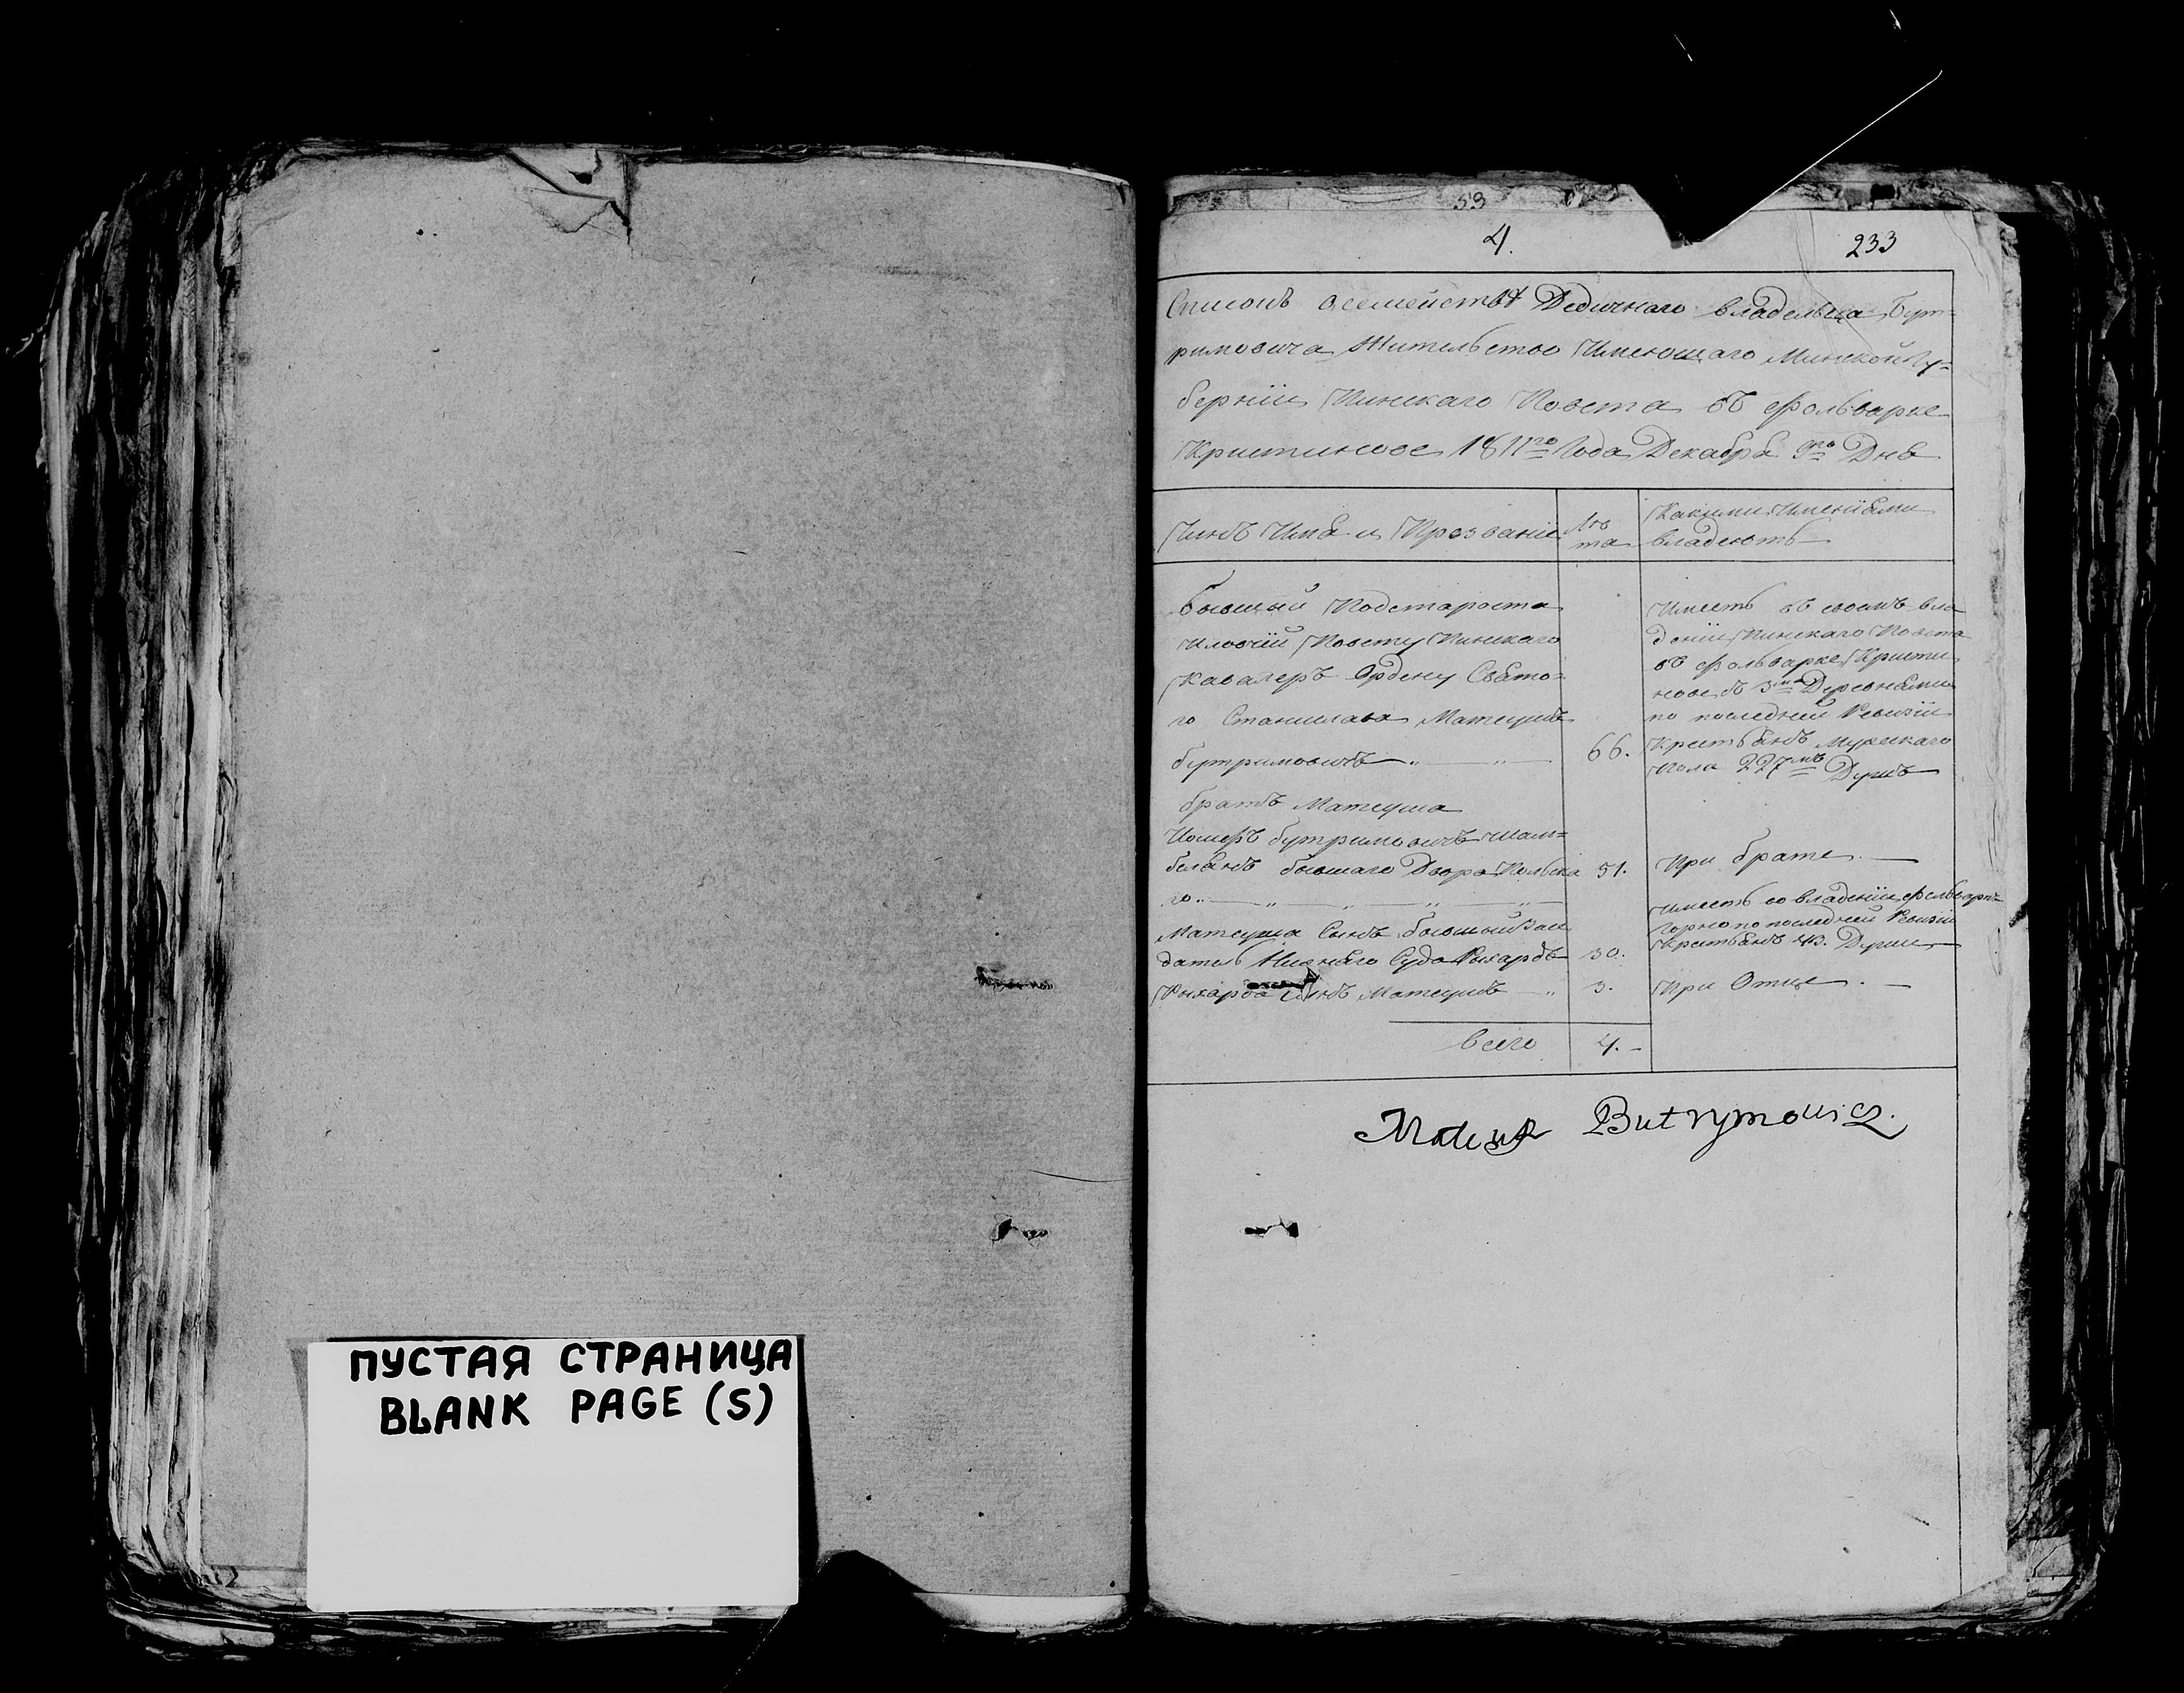 ПУСТАЯ СТРАНИЦА
BLANK PAGE (S)
53
4.
233
Списокъ о семействѣ Дедичнаго владельца Бут=
римовича Жительство Имеющаго Минской Гу=
бернiи Пинскаго Повета въ фольварке
Кристиново 1811го Года Декабря 9го Дня
Чинъ Имя и Прозванiе
Лѣ
та
Какими Именiями
владеютъ
бывшый Подстароста
Иловчiй Повету Пинскаго
Кавалеръ Ордену Свято=
го Станислава Матеушъ
бутримовичъ
66.
Имеетъ въ своемъ вла
денiи Пинскаго Повета
въ фольварке Кристи
ново съ 3мя Деревнями
по последней Ревизiи
Крестьянъ Мужскаго
Пола 227мъ Душъ
братъ Матеуша
Иозефъ бутримовичъ Шам=
белянъ бывшаго Двора Полска
го
51.
При брате
Матеуша Сынъ бывшый Засе
датель Нижняго Суда Рыхардъ
30.
Имеетъ во владенiи фольварк=
по последней Ревизiи
Крестьянъ 43. Души
Рыхарда Сынъ Матеушъ
3.
При Отце
Всего
4.
Mateusz Butrymowicz.